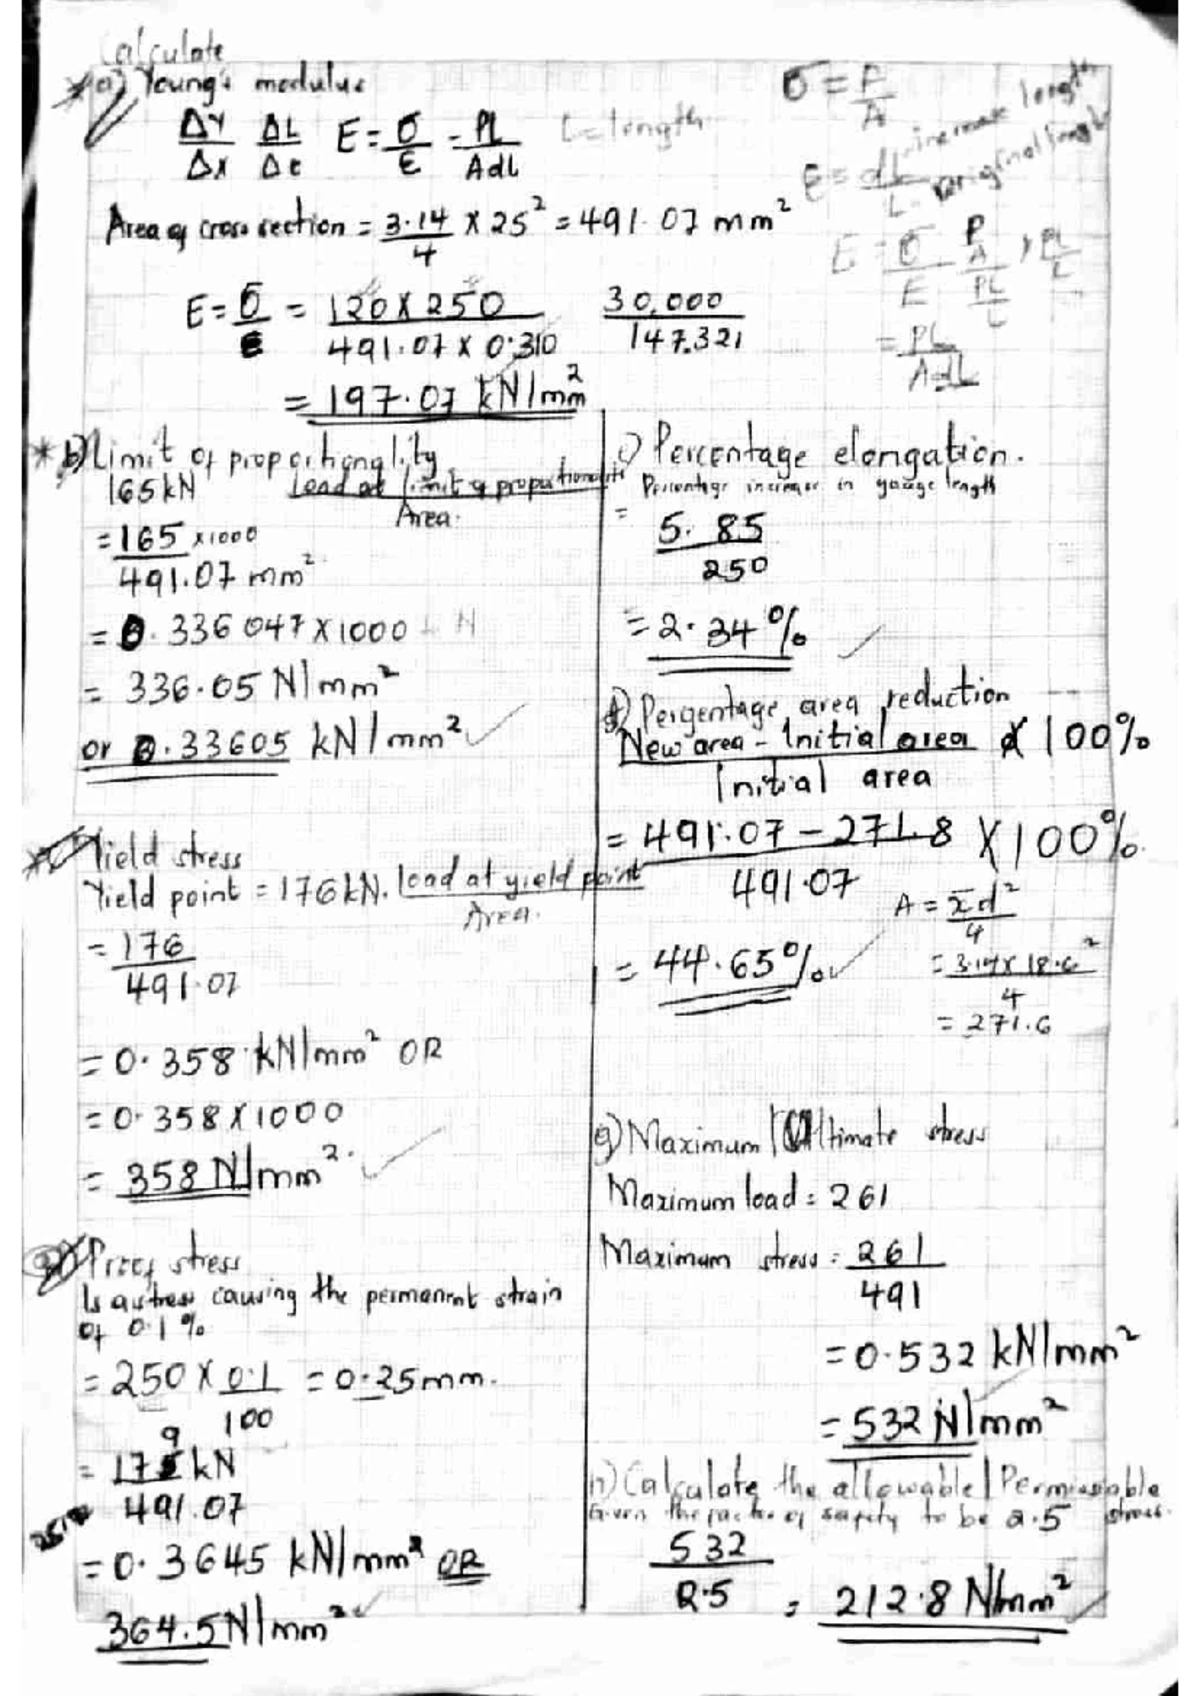 Calculate
a) Young's modulus
ΔY/Δx ΔL/Δe E = σ/ε = PL/AdL L = length
σ = P/A
E = dL/L increase length original length
Area of cross section = 3.14/4 x 25² = 491.07 mm²
E = σ/E P/A / PL/L , PL/L
= PL/AdL
E = σ/ε = 120 x 250 / 491.07 x 0.310 30,000/147.321
= 197.07 kN/mm²
b) Limit of proportionality
165kN Load at limit of proportionality / Area.
= 165 x1000 / 491.07 mm²
= 0.336047 x 1000 N
= 336.05 N/mm²
or 0.33605 kN/mm²
Yield stress
Yield point = 176kN. load at yield point / Area.
= 176 / 491.07
= 0.358 kN/mm² OR
= 0.358 x 1000
= 358 N/mm².
Proof stress
Is a stress causing the permanent strain
of 0.1%
= 250 x 0.1/100 = 0.25mm.
= 179 kN / 491.07
= 0.3645 kN/mm² OR
364.5 N/mm²
Percentage elongation.
Percentage increase in gauge length
= 5.85 / 250
= 2.34%
f) Pergentage area reduction
New area - Initial area / Initial area x 100%
= 491.07 - 271.8 / 491.07 x 100%
= 44.65%
A = πd²/4
= 3.14 x 18.6² / 4
= 271.6
g) Maximum / Ultimate stress
Maximum load = 261
Maximum stress = 261 / 491
= 0.532 kN/mm²
= 532 N/mm²
h) Calculate the allowable / Permissable
Given the factor of safety to be 2.5 stress.
532 / 2.5 = 212.8 N/mm²